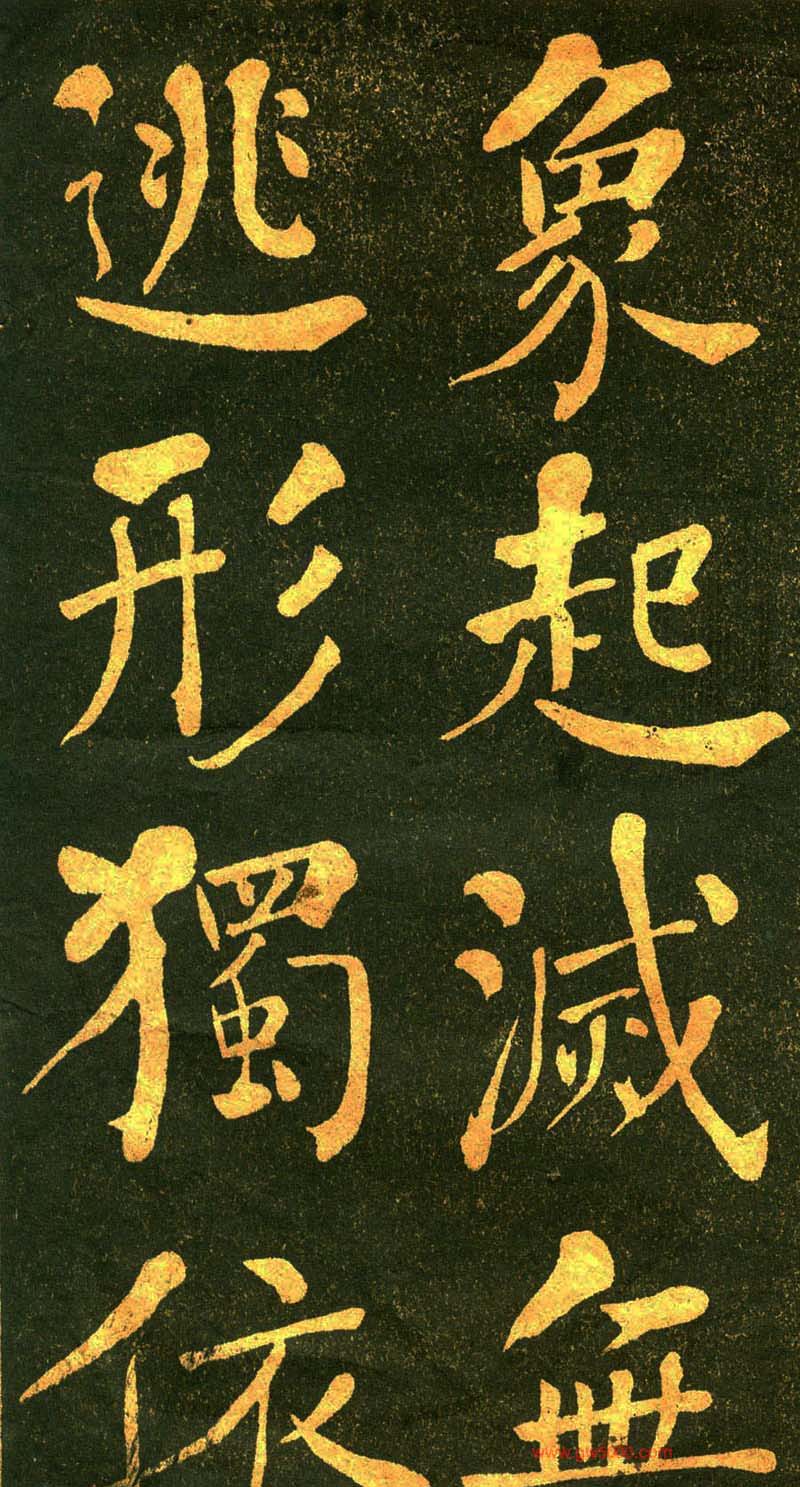 象起滅無
逃形獨依